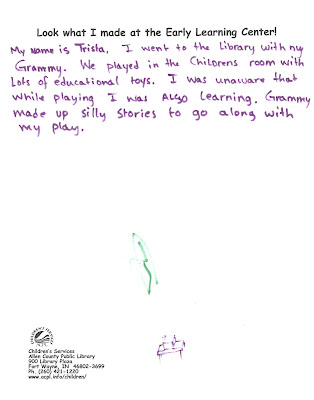 Look what I made at the Early Learning Center!
My name is Trista. I went to the Library with my
Grammy. We played in the Childrens room with
Lots of educational toys. I was unaware that
while playing I was ALSO Learning. Grammy
made up silly stories to go along with
my play.
Children's Services
Allen County Public Library
900 Library Plaza
Fort Wayne, IN 46802-3699
Ph. (260) 421-1220
www.acpl.info/children/